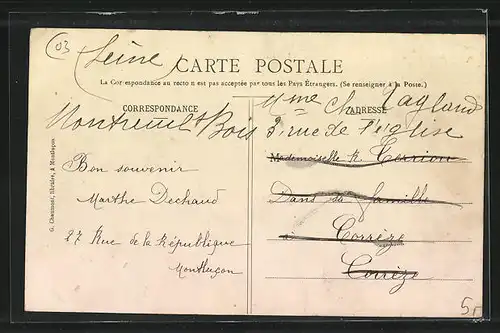 03
(Seine)
CARTE POSTALE
La Correspondance au recto n'est pas acceptée par tous les Pays Étrangers. (Se renseigner à la Poste.)
CORRESPONDANCE
ADRESSE
Mme Ch. Lagland
Montreuil s/ Bois 3, rue de l'église
Bon souvenir
Marthe Dechaud
27 Rue de la République
Montluçon
Mademoiselle K. Terrion
Dans sa famille
à Corrèze
Corrèze
G. Chaumont, libraire, à Montluçon
5f